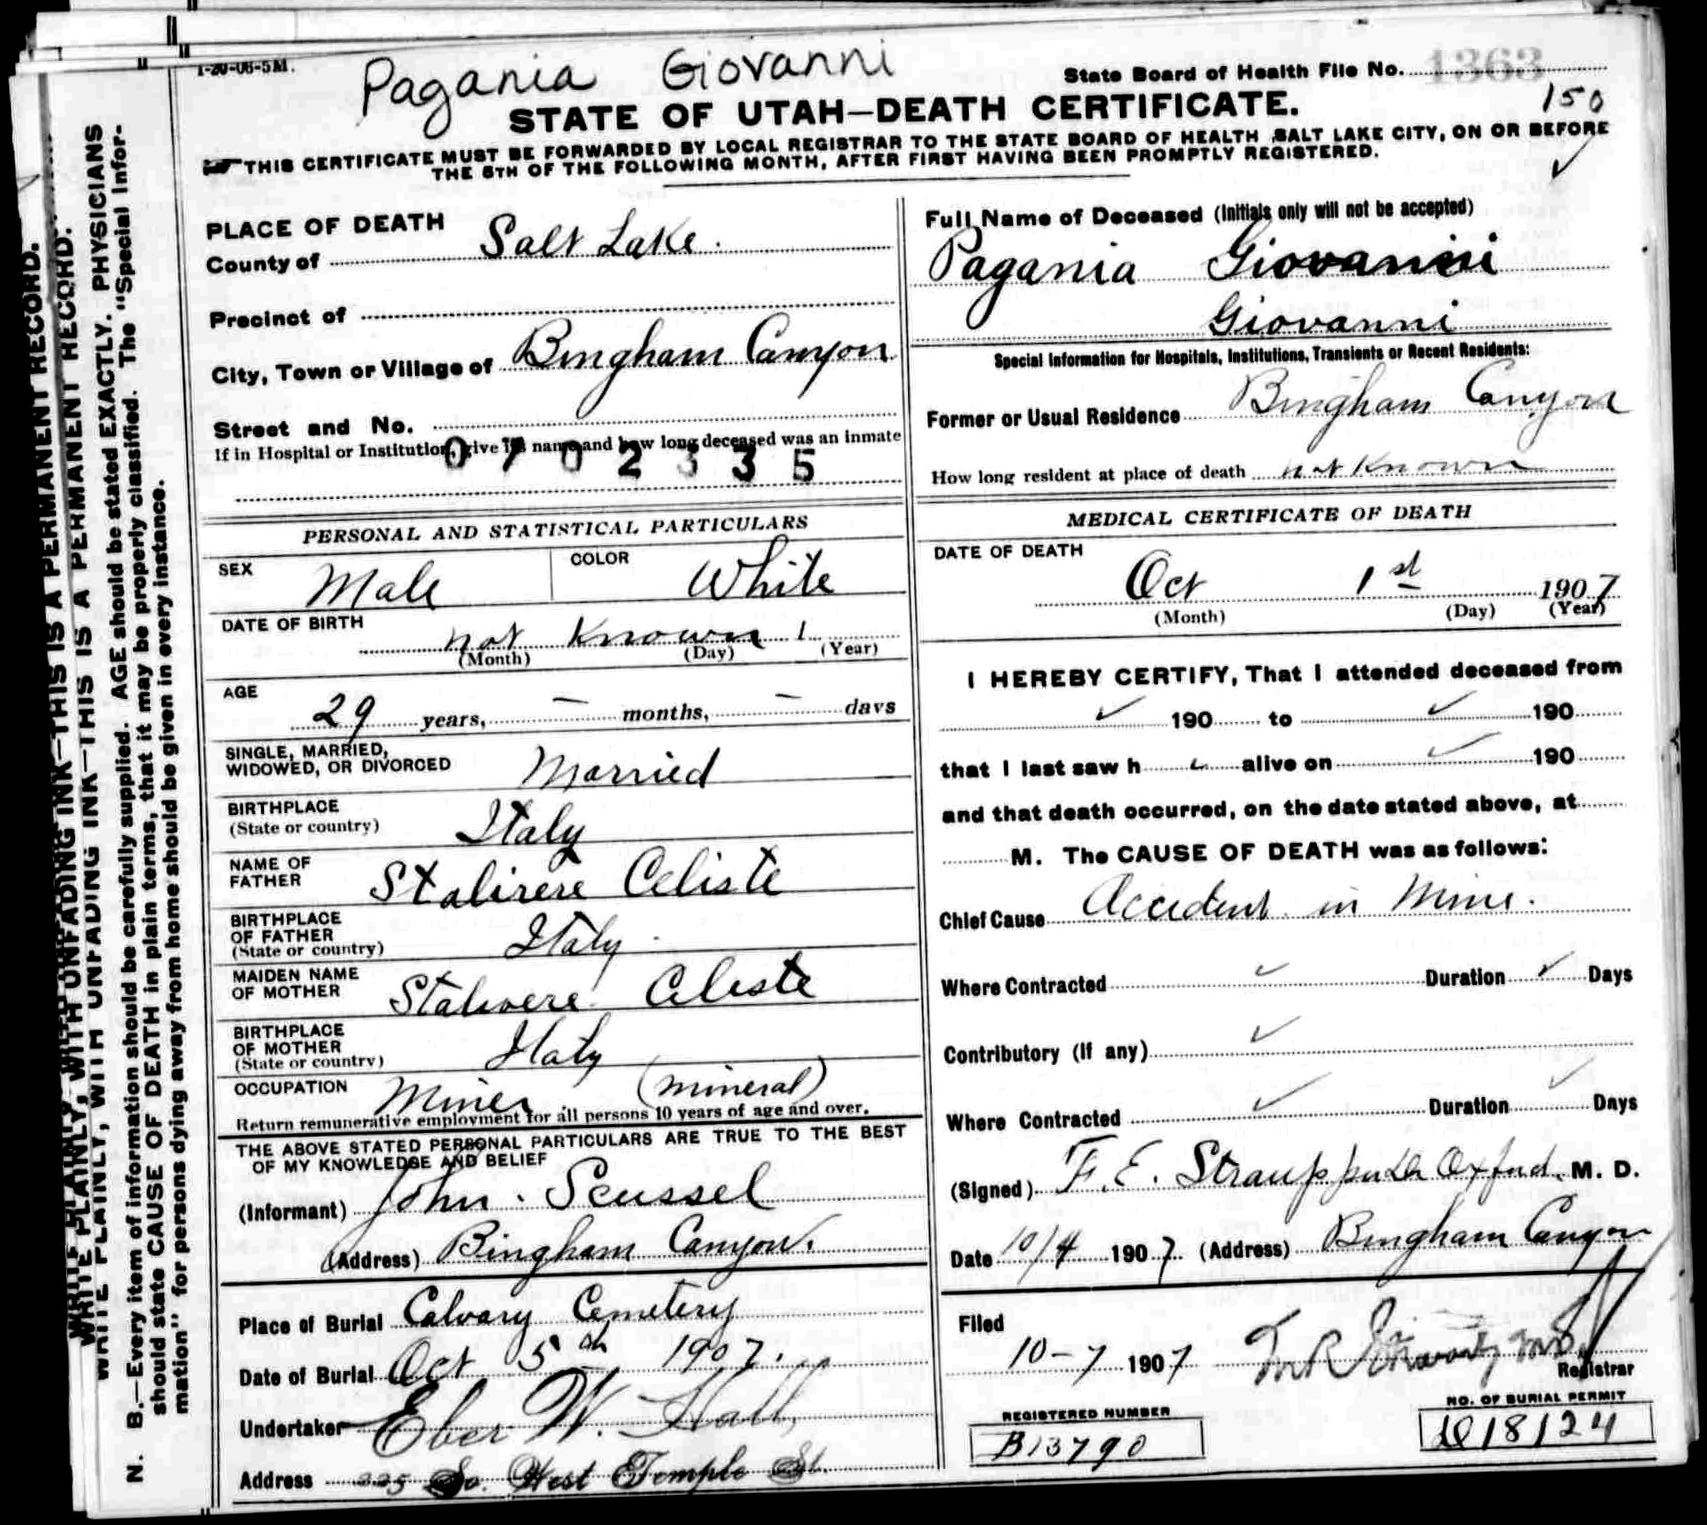 1-20-06-5M.
Pagania Giovanni
State Board of Health File No. 1363
150
STATE OF UTAH—DEATH CERTIFICATE.
THIS CERTIFICATE MUST BE FORWARDED BY LOCAL REGISTRAR TO THE STATE BOARD OF HEALTH, SALT LAKE CITY, ON OR BEFORE
THE 5TH OF THE FOLLOWING MONTH, AFTER FIRST HAVING BEEN PROMPTLY REGISTERED.
WRITE PLAINLY, WITH UNFADING INK—THIS IS A PERMANENT RECORD.
N. B.—Every item of information should be carefully supplied. AGE should be stated EXACTLY. PHYSICIANS
should state CAUSE OF DEATH in plain terms, that it may be properly classified. The "Special Infor-
mation" for persons dying away from home should be given in every instance.
PLACE OF DEATH
County of Salt Lake.
Precinct of
City, Town or Village of Bingham Canyon
Street and No.
If in Hospital or Institution, give its name and how long deceased was an inmate
0702335
PERSONAL AND STATISTICAL PARTICULARS
SEX Male COLOR White
DATE OF BIRTH not Known 1
(Month) (Day) (Year)
AGE
29 years, – months, – days
SINGLE, MARRIED,
WIDOWED, OR DIVORCED Married
BIRTHPLACE
(State or country) Italy
NAME OF
FATHER Stalirere Celiste
BIRTHPLACE
OF FATHER
(State or country) Italy
MAIDEN NAME
OF MOTHER Stalivere Celeste
BIRTHPLACE
OF MOTHER
(State or country) Italy
OCCUPATION Miner (mineral)
Return remunerative employment for all persons 10 years of age and over.
THE ABOVE STATED PERSONAL PARTICULARS ARE TRUE TO THE BEST
OF MY KNOWLEDGE AND BELIEF
(Informant) John Scussel
(Address) Bingham Canyon.
Place of Burial Calvary Cemetery
Date of Burial Oct 5th 1907.
Undertaker Eber W. Hall,
Address 225 So. West Temple St.
Full Name of Deceased (Initials only will not be accepted)
Pagania Giovanni
Giovanni
Special Information for Hospitals, Institutions, Transients or Recent Residents:
Former or Usual Residence Bingham Canyon
How long resident at place of death not Known
MEDICAL CERTIFICATE OF DEATH
DATE OF DEATH
Oct 1st 1907
(Month) (Day) (Year)
I HEREBY CERTIFY, That I attended deceased from
190 to 190
that I last saw h alive on 190
and that death occurred, on the date stated above, at
M. The CAUSE OF DEATH was as follows:
Chief Cause Accident in Mine.
Where Contracted Duration Days
Contributory (If any)
Where Contracted Duration Days
(Signed) F. E. Straup M. D.
Date 10/4 1907. (Address) Bingham Canyon
Filed
10-7 1907
Registrar
REGISTERED NUMBER
B13790
NO. OF BURIAL PERMIT
18124